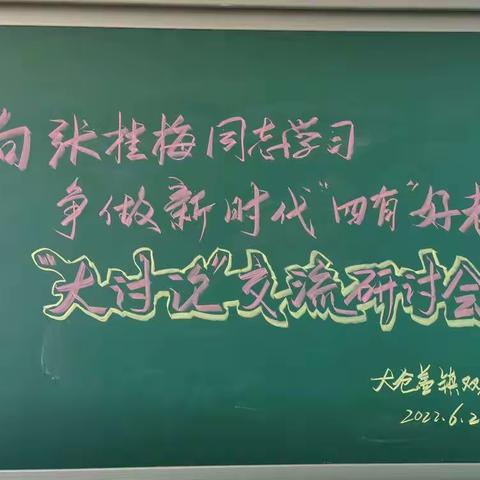 向张桂梅同志学习
争做新时代“四有”好老
“大讨论”交流研讨会
大仓盖镇双
2022.6.2